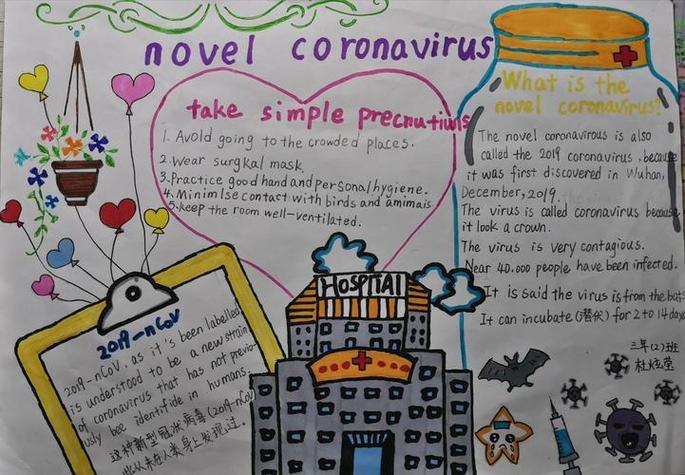 novel coronavirus
take simple precrutiuns
1. Avold going to the crowded places.
2. Wear surgkal mask.
3. Practice good hand and personal hygiene.
4. Minimlse contact with birds and amimais
5. keep the room well-ventilated.
What is the
novel coronavirus?
The novel coronavirous is also
called the 2019 coronavirus, because
it was first discovered in Wuhan,
December, 2019.
The virus is called coronavirus because
it look a crown.
The virus is very contagious.
Near 40.000 people have been infected.
It is said the virus is from the bats
It can incubate (潜伏) for 2 to 14 days
三年(2)班
杜
HOSPITAl
2019-nCoV
2019-nCoV, as it's been labelled
is understood to be a new strain
of coronavirus that has not previo-
usly bee identifide in humans.
这种新型冠状病毒 (2019-nCoV
此从未在人类身上发现过。